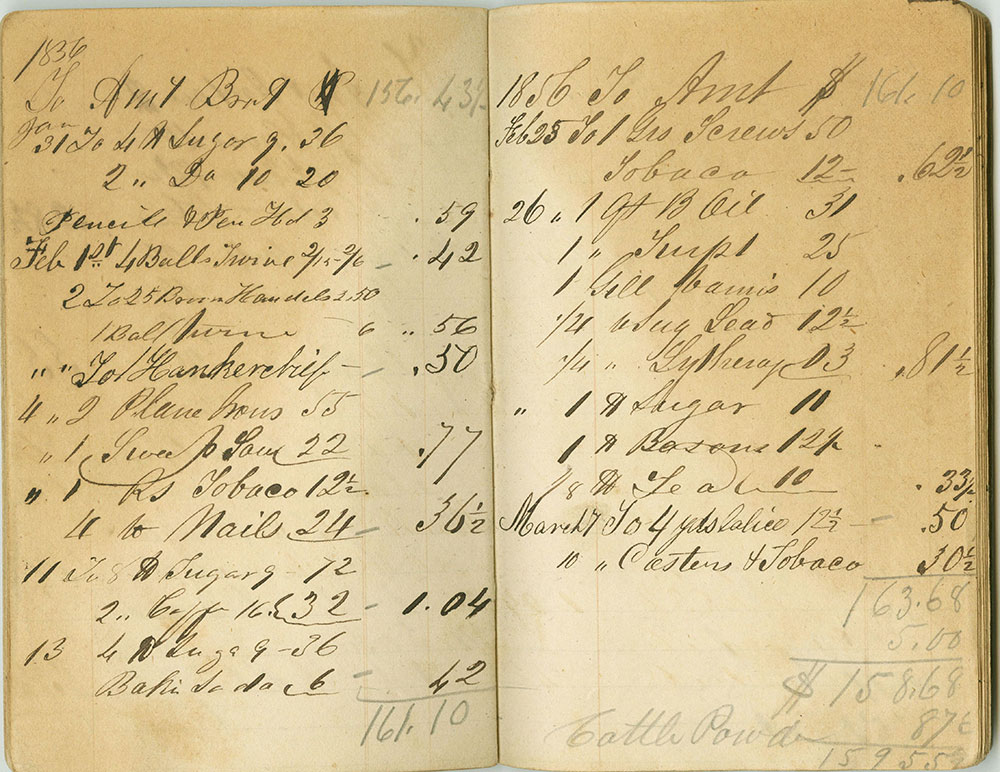 1836
To Amt Brot $ 156.43½
Jan
31 To 4 lb Sugar 9. 36
2 " Do 10 20
Pencill & Pen Hd 3 .59
Feb 1st 4 Balls Twine - .42
2 To 25 Broom Handels 2.50
1 Ball Twine 6 " 56
" " To 1 Hankerchif - .50
4 " 2 Plane Irons 55
" 1 Sweep Saw 22 .77
" 1 Tobaco 12½
4 lb Nails 24 - 36½
11 To 8 lb Sugar 9 - 72
2 " Coffe 16. 32 - 1.04
13 4 lb Suga 9 - 36
Bakin Soda 6 - 42
161.10
1856 To Amt $ 161.10
Feb 25 To 1 Gro Screws 50
Tobaco 12- .62½
26 " 1 qt B Oil 31
1 " Turpt 25
1 Gill Varnis 10
1/4 lb Sug Lead 12½
1/4 " 03 .81½
" 1 lb Sugar 11
1 lb 12½
1/8 lb Tea 10 . 33½
March 7 To 4 yds Calico 12½ - .50
10 " Casters & Tobaco 30½
163.68
5.00
$ 158.68
Cattle Powder 87c
159 55